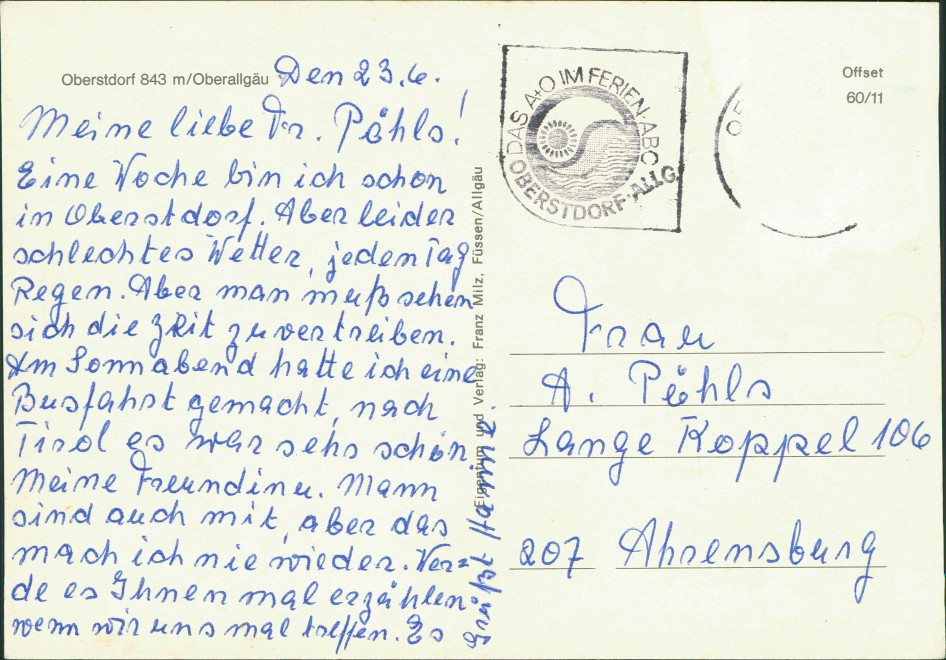 Oberstdorf 843 m/Oberallgäu
Den 23.6.
Meine liebe Fr. Pöhls!
Eine Woche bin ich schon
in Oberstdorf. Aber leider
schlechtes Wetter, jeden Tag
Regen. Aber man muß sehen
sich die Zeit zu vertreiben.
Am Sonnabend hatte ich eine
Busfahrt gemacht, nach
Tirol es war sehr schön
Meine Freundin u. Mann
sind auch mit, aber das
mach ich nie wieder. Wer=
de es Ihnen mal erzählen
wenn wir uns mal treffen. Es
grüßt
Eigentum und Verlag: Franz Milz, Füssen/Allgäu
DAS A+O IM FERIEN-ABC
OBERSTDORF·ALLG.
Offset
60/11
Frau
A. Pöhls
Lange Koppel 106
207 Ahrensburg